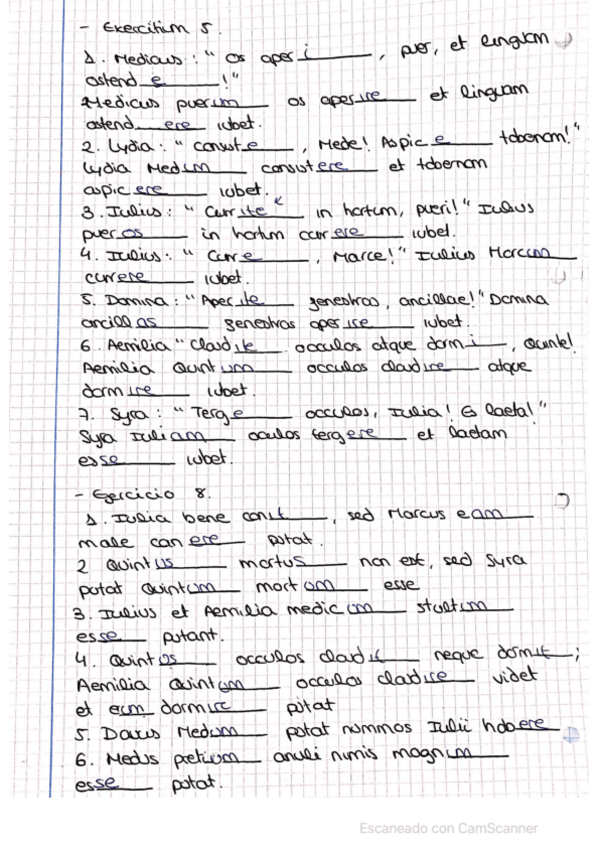 - Exercitium 5.
1. Medicus: "Os aperi, puer, et linguam
ostende!"
Medicus puerum os aperire et linguam
ostendere iubet.
2. Lydia: "Consute, Mede! Aspice tabernam!"
Lydia Medum consutere et tabernam
aspicere iubet.
3. Iulius: "Currite in hortum, pueri!" Iulius
pueros in hortum currere iubet.
4. Iulius: "Curre, Marce!" Iulius Marcum
currere iubet.
5. Domina: "Aperite fenestras, ancillae!" Domina
ancillas fenestras aperire iubet.
6. Aemilia "Claudite occulos atque dormi, Quinte!
Aemilia Quintum occulos claudire atque
dormire iubet.
7. Syra: "Terge occulos, Iulia! Es laeta!"
Syra Iuliam oculos tergere et laetam
esse iubet.
- Ejercicio 8.
1. Iulia bene canit, sed Marcus eam
male canere putat.
2 Quintus mortus non est, sed Syra
putat Quintum mortum esse
3. Iulius et Aemilia medicum stultum
esse putant.
4. Quintos occulos claudit neque dormit;
Aemilia Quintum occulos claudire videt
et eum dormire putat
5. Davus Medum putat nummos Iulii habere
6. Medus pretium anuli nimis magnum
esse putat.
Escaneado con CamScanner